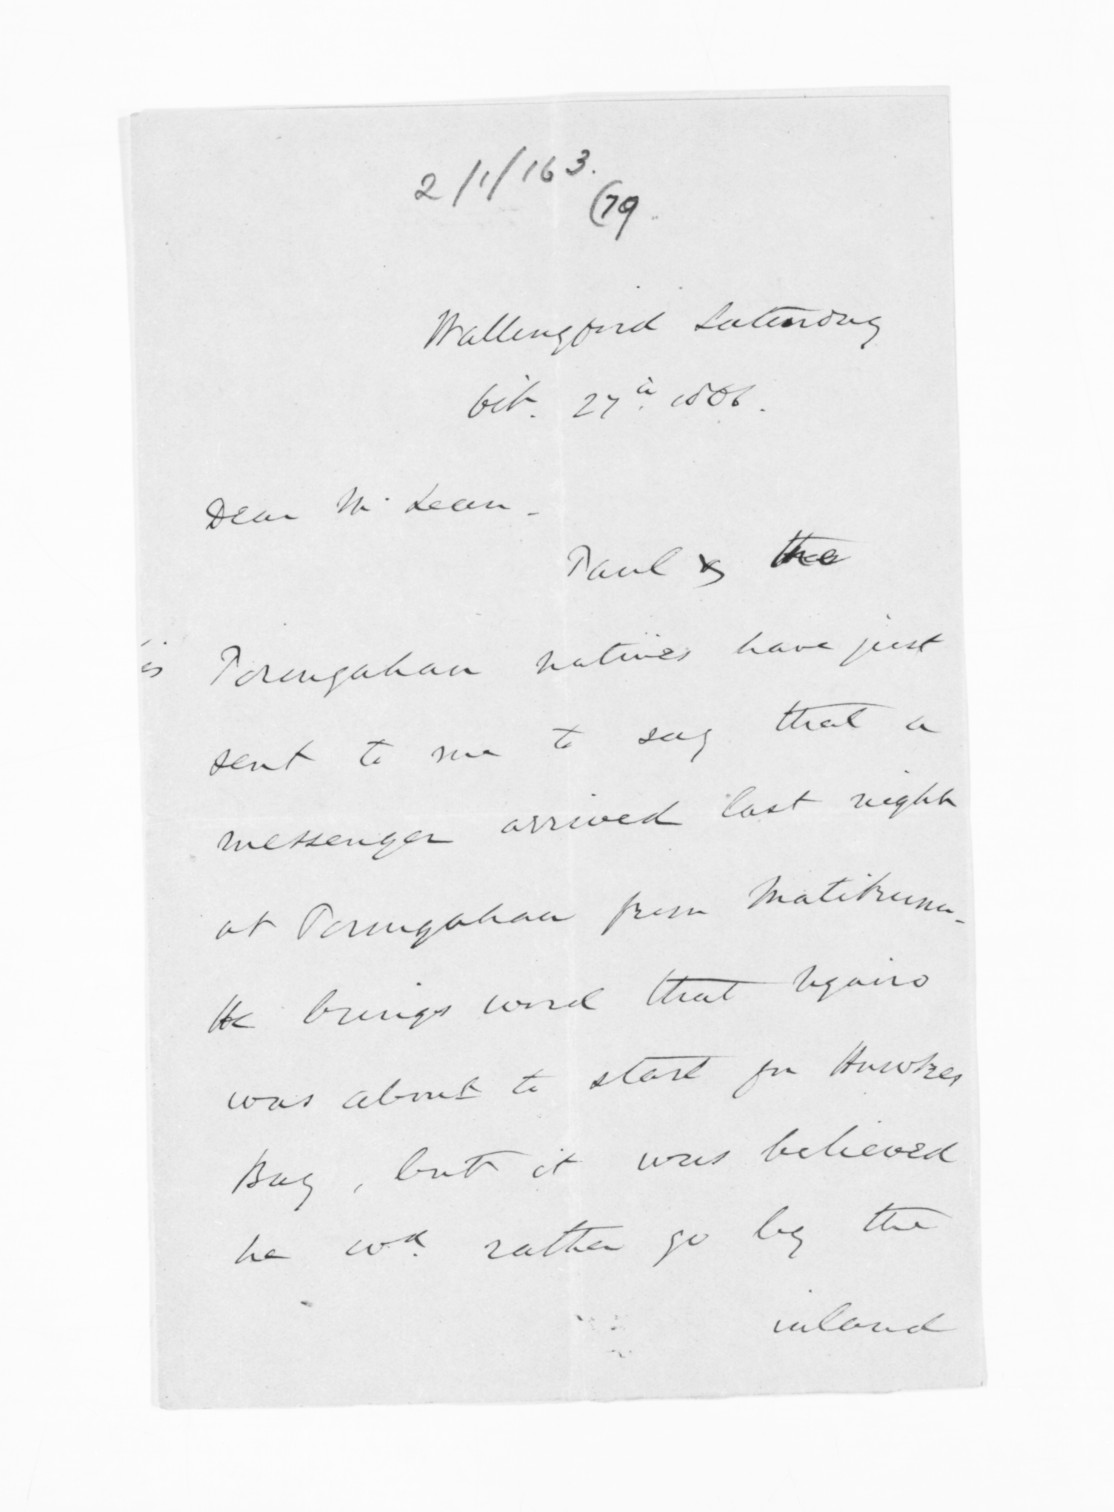 2/1/163.
(79.
Wallingford Saturday
Oct. 27th 1866.
Dear McLean.
Paul & the
Porangahau natives have just
sent to me to say that a
messenger arrived last night
at Porangahau from Matikuna.
He brings word that Ngairo
was about to start for Hawkes
Bay, but it was believed
he wd. rather go by the
inland